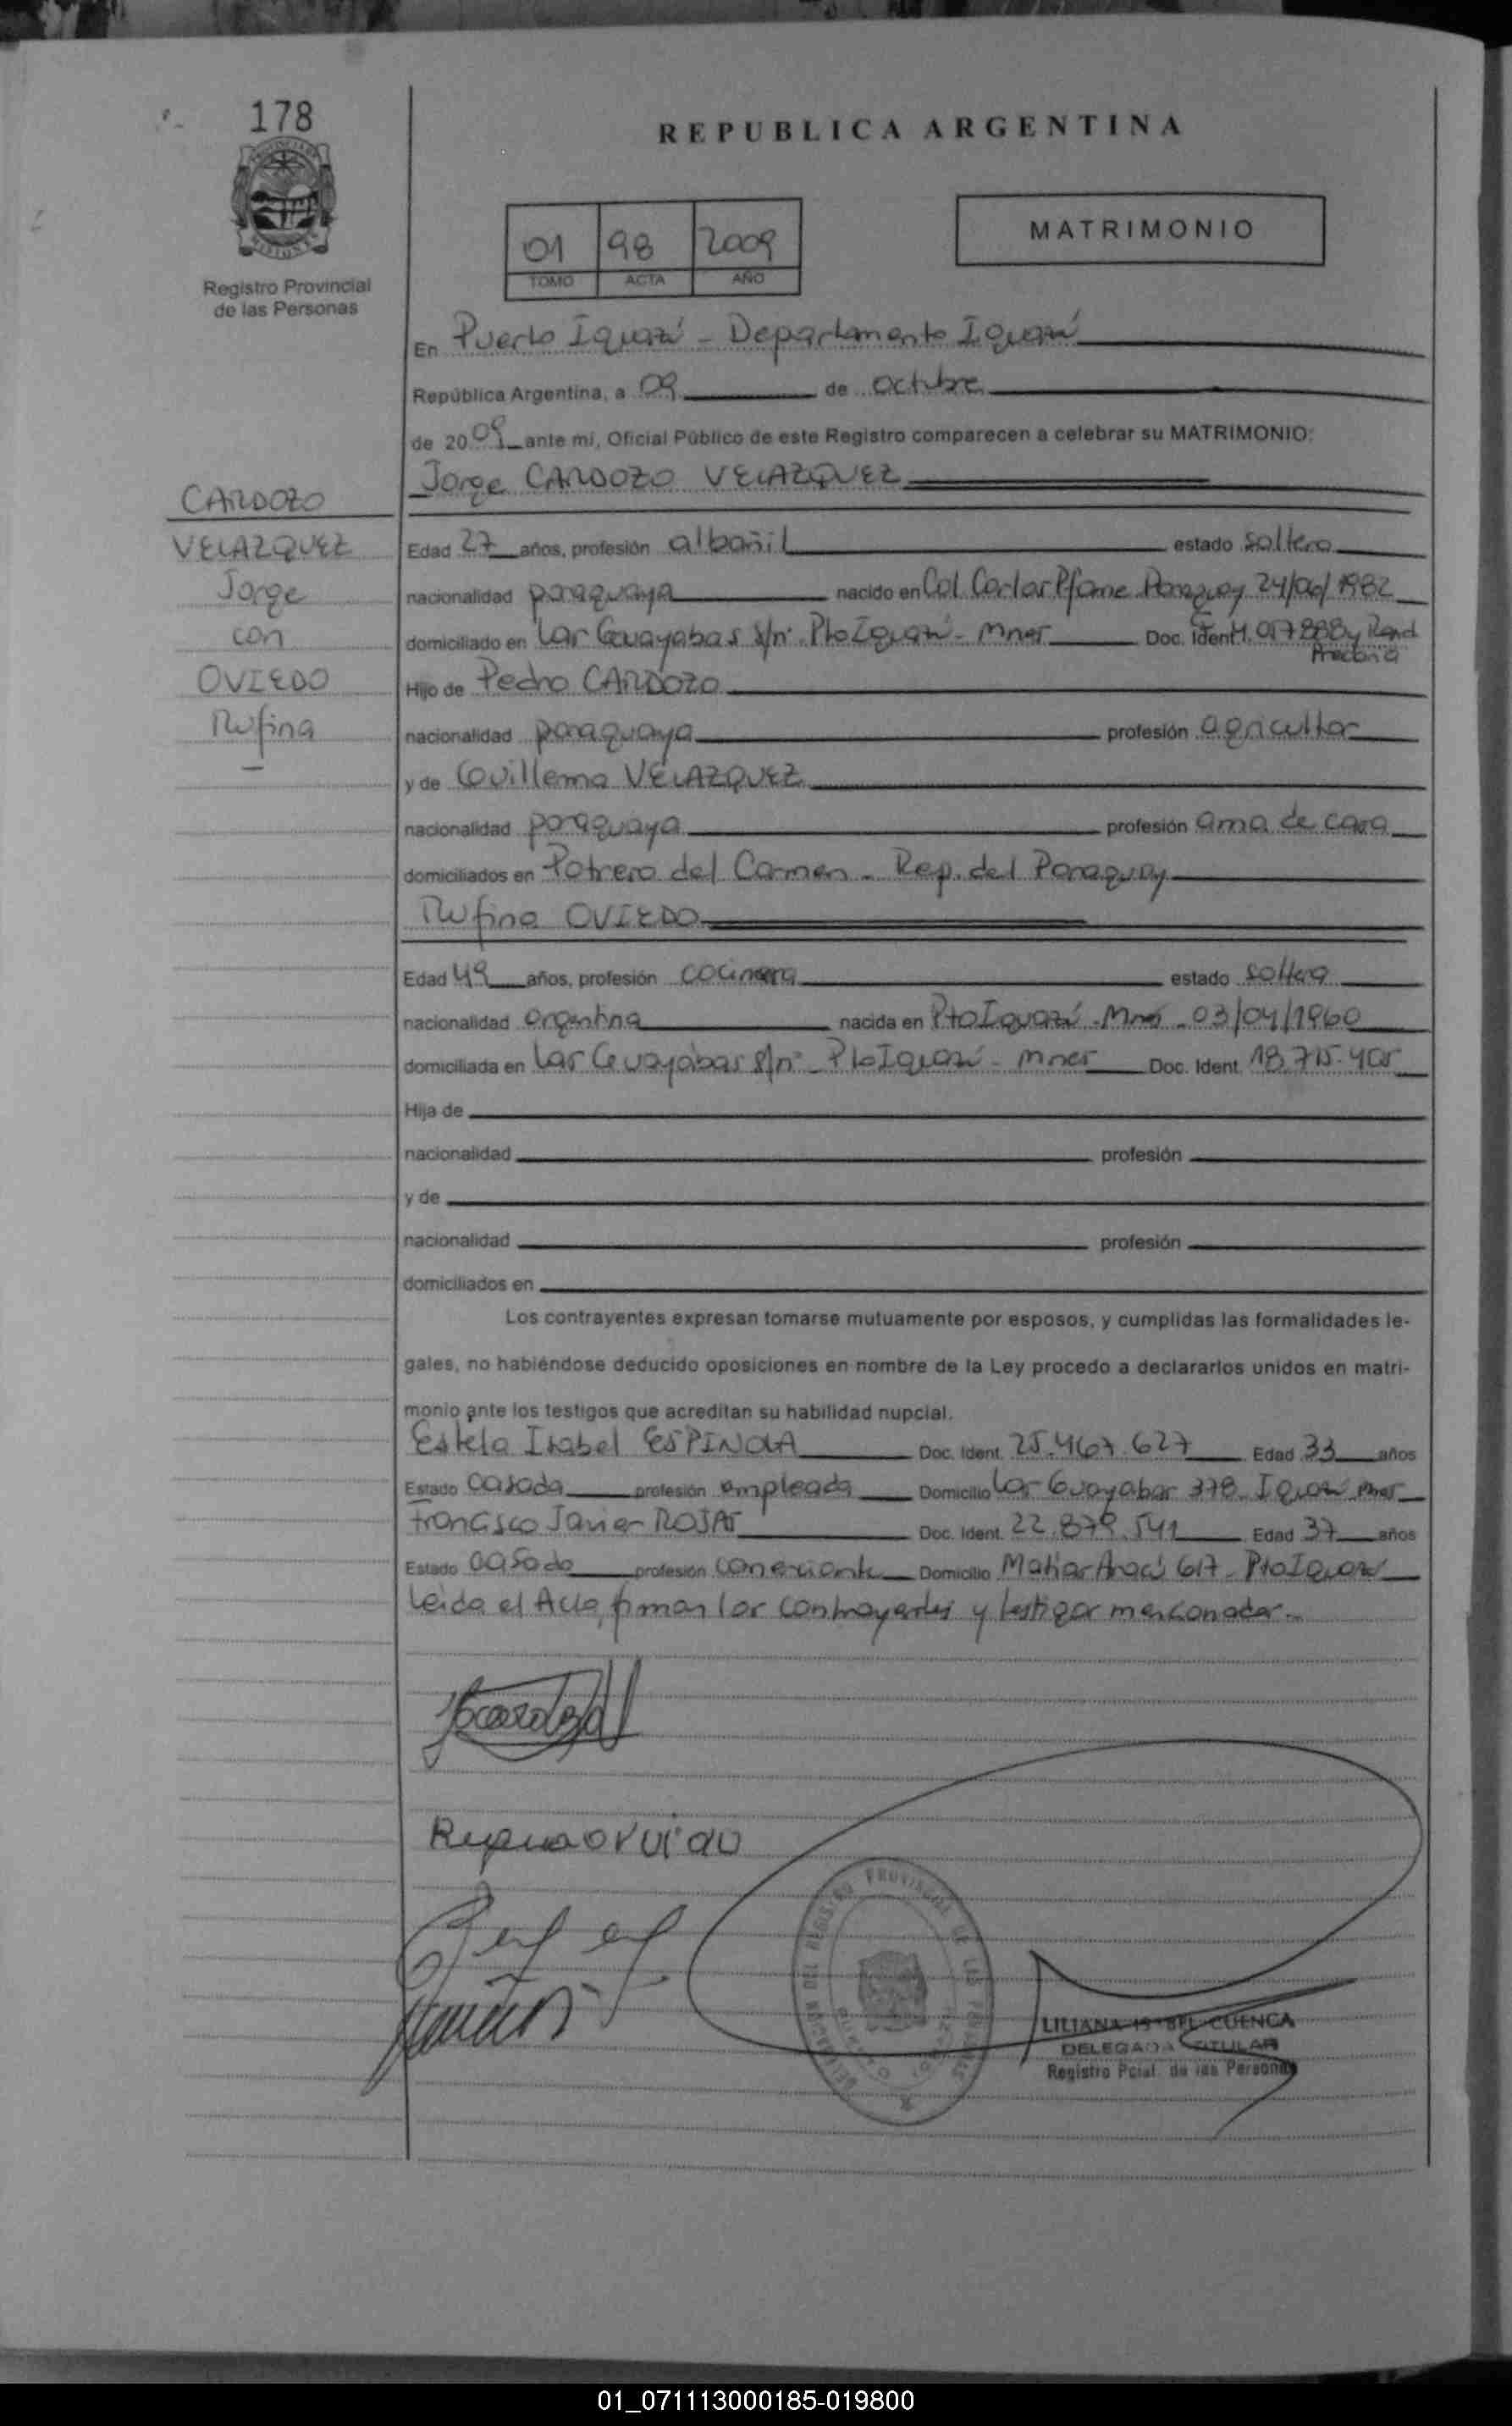 178
REPUBLICA ARGENTINA
MATRIMONIO
01 98 2009
TOMO ACTA AÑO
Registro Provincial
de las Personas
En Puerto Iguazú - Departamento Iguazú
República Argentina, a 09 de octubre
de 2009 ante mí, Oficial Público de este Registro comparecen a celebrar su MATRIMONIO:
Jorge CARDOZO VELAZQUEZ
CARDOZO
VELAZQUEZ
Jorge
con
OVIEDO
Rufina
Edad 27 años, profesión albañil estado soltero
nacionalidad paraguaya nacido en Col. Carlos Paraguay 24/06/1982
domiciliado en Las Guayabas s/nº Pto Iguazú - Mnes Doc. Ident. y
Precaria
Hijo de Pedro CARDOZO
nacionalidad paraguaya profesión agricultor
y de Guillerma VELAZQUEZ
nacionalidad paraguaya profesión ama de casa
domiciliados en Potrero del Carmen - Rep. del Paraguay
Rufina OVIEDO
Edad 49 años, profesión cocinera estado soltera
nacionalidad argentina nacida en Pto Iguazú - Mnes - 03/04/1960
domiciliada en Las Guayabas s/nº - Pto Iguazú - Mnes Doc. Ident. 18.715.
Hija de
nacionalidad profesión
y de
nacionalidad profesión
domiciliados en
Los contrayentes expresan tomarse mutuamente por esposos, y cumplidas las formalidades le-
gales, no habiéndose deducido oposiciones en nombre de la Ley procedo a declararlos unidos en matri-
monio ante los testigos que acreditan su habilidad nupcial.
Estela Isabel ESPINOLA Doc. Ident. 25.467.627 Edad 33 años
Estado casada profesión empleada Domicilio Las Guayabas 378 - Iguazú Mnes
Francisco Javier ROJAS Doc. Ident. 22.879.541 Edad 37 años
Estado casado profesión comerciante Domicilio Matias 617 - Pto Iguazú
Leída el Acta, firman los contrayentes y testigos mencionados.-
LILIANA ISABEL CUENCA
DELEGADA TITULAR
Registro Pcial. de las Personas
01_071113000185-019800